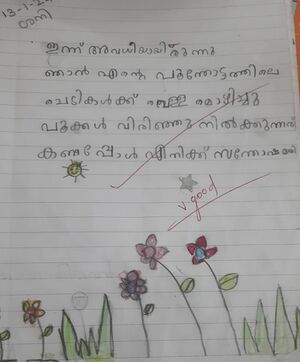 13-1-2
ശനി
ഇന്ന് അവധിയായിരുന്നു
ഞാൻ എന്റെ പൂന്തോട്ടത്തിലെ
ചെടികൾക്ക് വെള്ളമൊഴിച്ചു
പൂക്കൾ വിരിഞ്ഞു നിൽക്കുന്നത്
കണ്ടപ്പോൾ എനിക്ക് സന്തോഷമായി
v. good